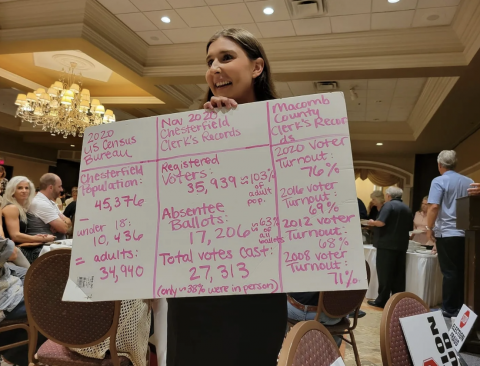 2020
US Census
Bureau
Chesterfield
Population:
45,376
-
under 18:
10,436
= adults:
34,940
Nov 2020
Chesterfield
Clerk's Records
Registered
Voters:
35,939
≈103%
of
adult
pop.
Absentee
Ballots:
17,206
≈63%
of
all
ballots
Total Votes Cast:
27,313
(only ≈38% were in person)
Macomb
County
Clerk's Recor
ds
2020 Voter
Turnout:
76%
2016 voter
Turnout:
69%
2012 Voter
Turnout:
68%
2008 Voter
Turnout:
71%